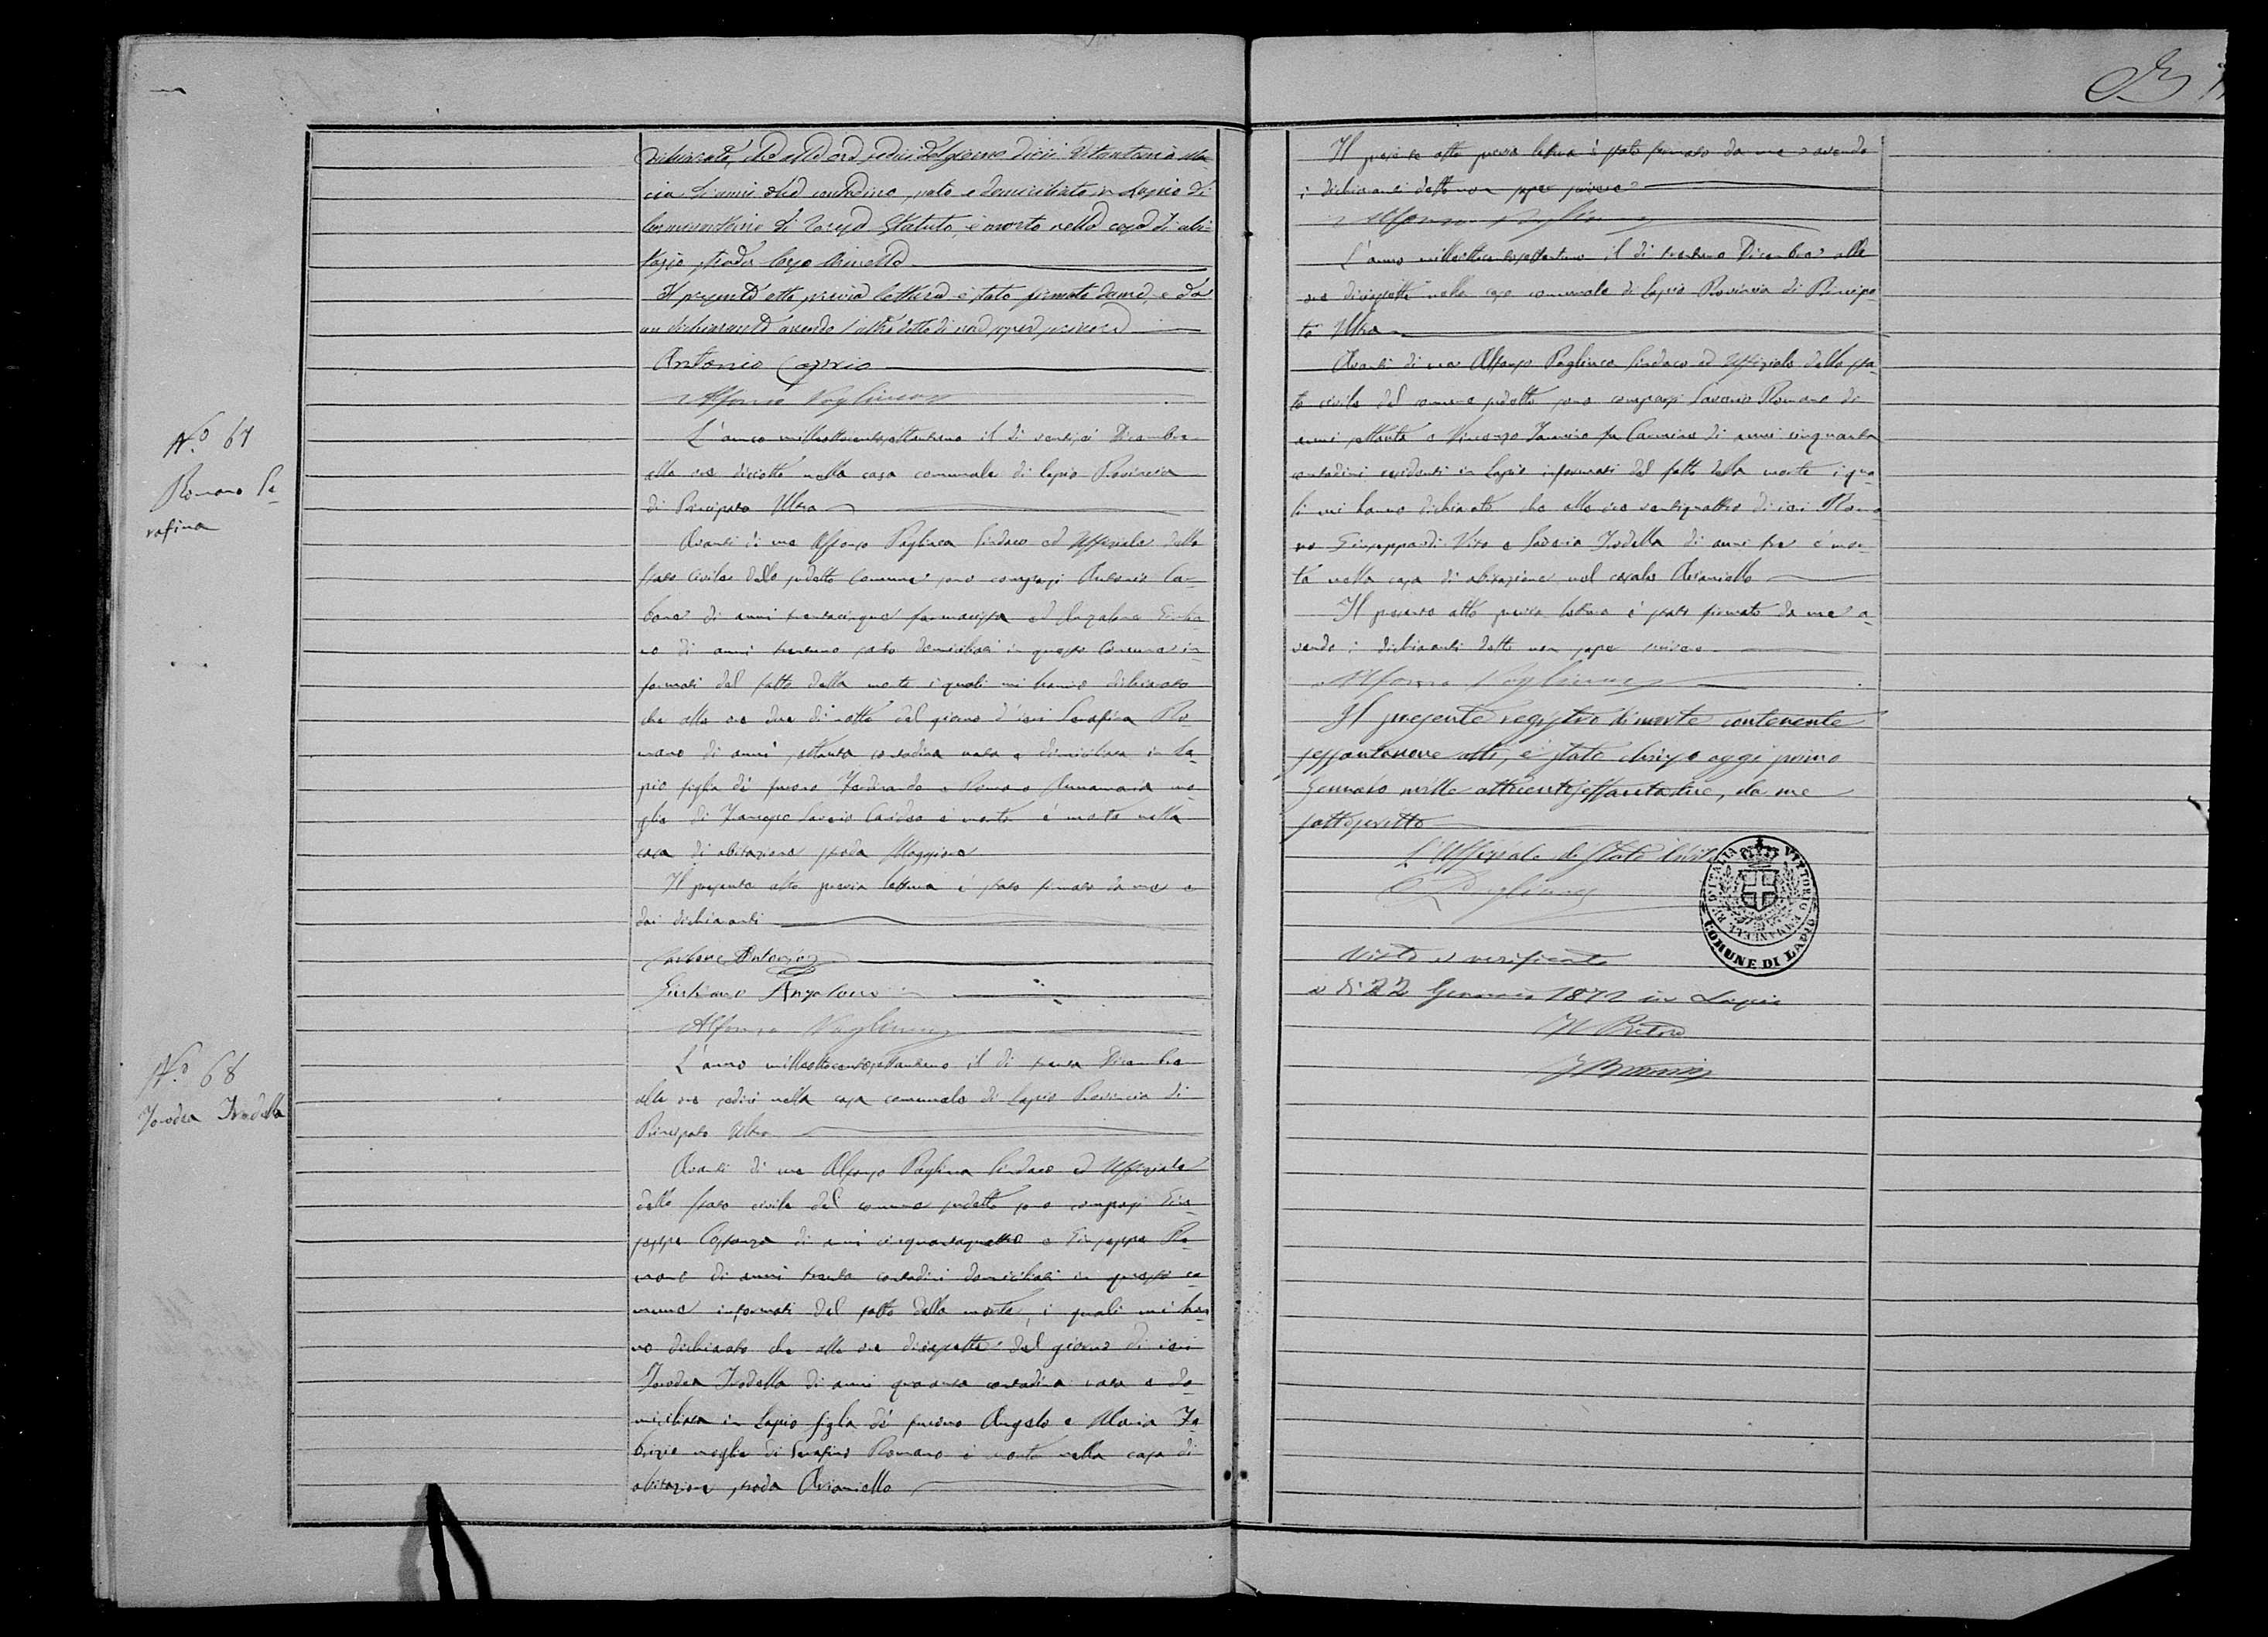 dichiarato, che alle ore sedici del giorno di ieri Vitantonio
di anni contadino, nato e domiciliato in Lapio di
di Statuto, è morto nella casa di abi-
tazio strada largo
Il presente atto previa lettura è stato firmato da me e da
un dichiarante avendo l'altro detto di non saper scrivere
Antonio Caprio
Alfonso Pagliuca
N.o 67
Romano Se-
rafina
L'anno milleottocentosettantuno il di ventisei Dicembre
alle ore diciotto nella casa comunale di Lapio Provincia
di Principato Ultra
Avanti di me Alfonso Pagliuca Sindaco ed Uffiziale dello
stato civile dello sudetto Comune sono comparsi Antonio Ca-
bone di anni trentacinque farmacista ed Anzalone Giulia-
no di anni trentuno domiciliati in questo Comune in-
formati del fatto della morte i quali mi hanno dichiarato
che alle ore due di notte del giorno d'ieri Serafina Ro-
mano di anni settanta contadina nata e domiciliata in La-
pio figlia di furono e Annamaria mo-
glie di Saverio è morta è morta nella
casa di abitazione strada Maggiore
Il presente atto previa lettura è stato firmato da me e
dai dichiaranti
Carbone Antonio
Giuliano Anzalone
Alfonso Pagliuca
N.o 68
Irodella
L'anno milleottocentosettantuno il di trenta Dicembre
alle ore sedici nella casa comunale di Lapio Provincia di
Principato Ultra
Avanti di me Alfonso Pagliuca Sindaco ed Uffiziale
dello stato civile del comune sudetto sono comparsi Giu-
seppe Costanza di anni cinquantaquattro e Giuseppe Ro-
mano di anni trenta contadini domiciliati in questo co-
mune informati del fatto della morte, i quali mi han-
no dichiarato che alle ore diciasette del giorno di ieri
Irodella di anni quaranta contadina nata e do-
miciliata in Lapio figlia di furono Angelo e Maria Fa-
brizio moglie di Serafino Romano è morta nella casa di
abitazione strada Arianiello
Il presente atto previa lettura è stato firmato da me avendo
i dichiaranti detto non saper scrivere
Alfonso Pagliuca
L'anno milleottocentosettantuno il di trentuno Dicembre alle
ore diciasette nella casa comunale di Lapio Provincia di Principa-
to Ultra
Avanti di me Alfonso Pagliuca Sindaco ed Uffiziale dello sta-
to civile del comune sudetto sono comparsi Saverio Romano di
anni settanta e Vincenzo Iannino fu Carmine di anni cinquanta
contadini residenti in Lapio informati del fatto della morte i qua-
li mi hanno dichiarato che alle ore ventiquattro di ieri Roma-
no Giuseppa di Vito e Saveria Irodella di anni tre è mor-
ta nella casa di abitazione nel casale Arianiello
Il presente atto previa lettura è stato firmato da me a-
vendo i dichiaranti detto non saper scrivere
Alfonso Pagliuca
Il presente registro di morte contenente
sessantanove atti, è stato chiuso oggi primo
Gennaro mille ottocentosettantadue, da me
sottoscritto
L'Uffiziale di Stato Civile
A Pagliuca
VITTORIO EMANUELE RE D'ITALIA
COMUNE DI LAPIO
Visto e verificato
a dì 22 Gennaio 1872 in Lapio
Il Pretore